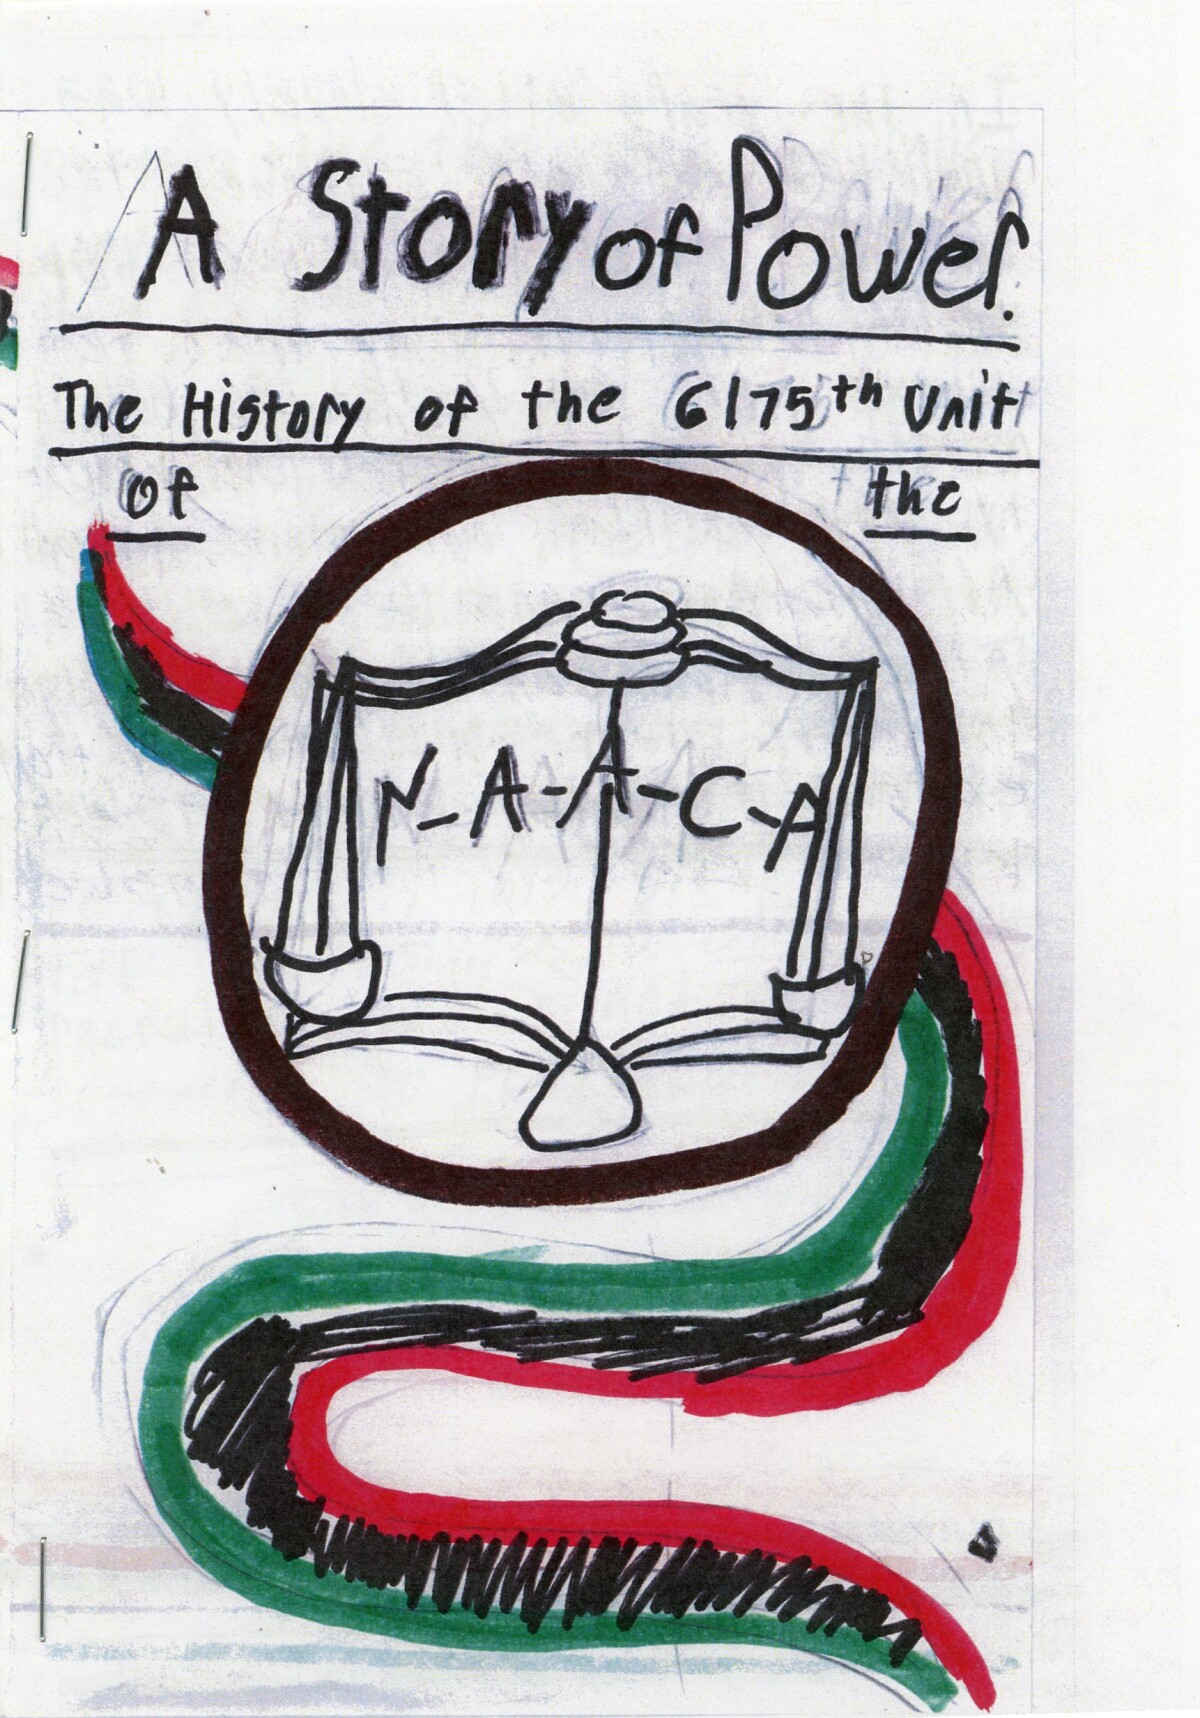 A Story of Power.
The History of the 6175th Unit
of the
N-A-A-C-P